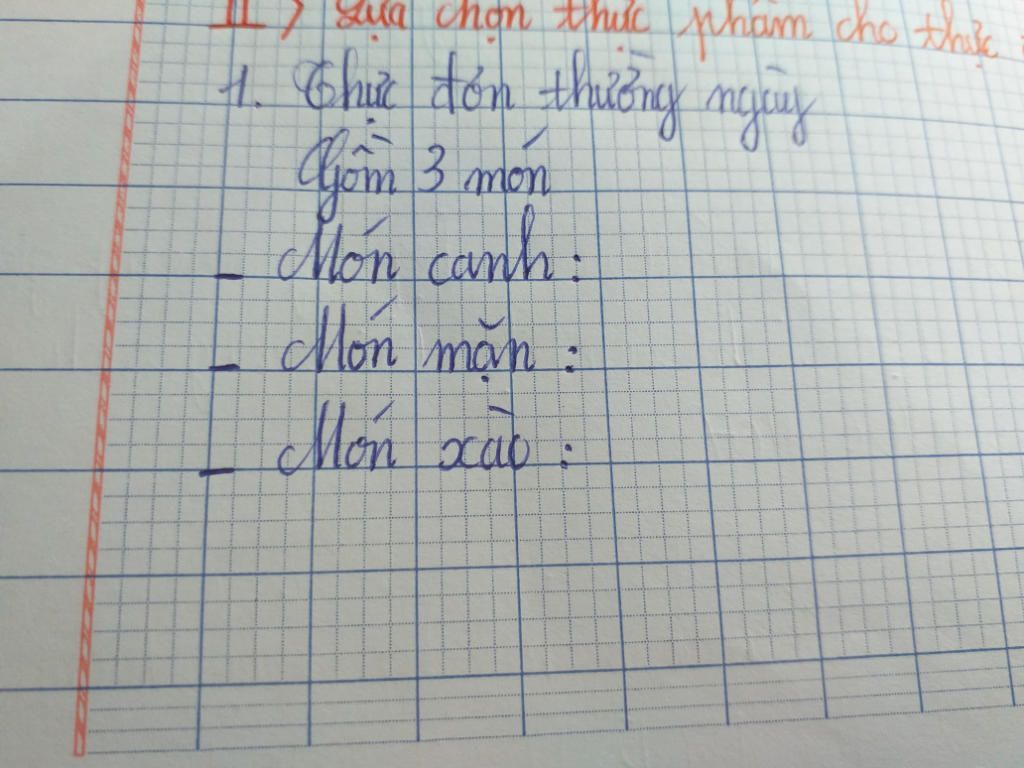 II) Lựa chọn thực phẩm cho thực
1. Thực đơn thường ngày
Gồm 3 món
- Món canh:
- Món mặn:
- Món xào: